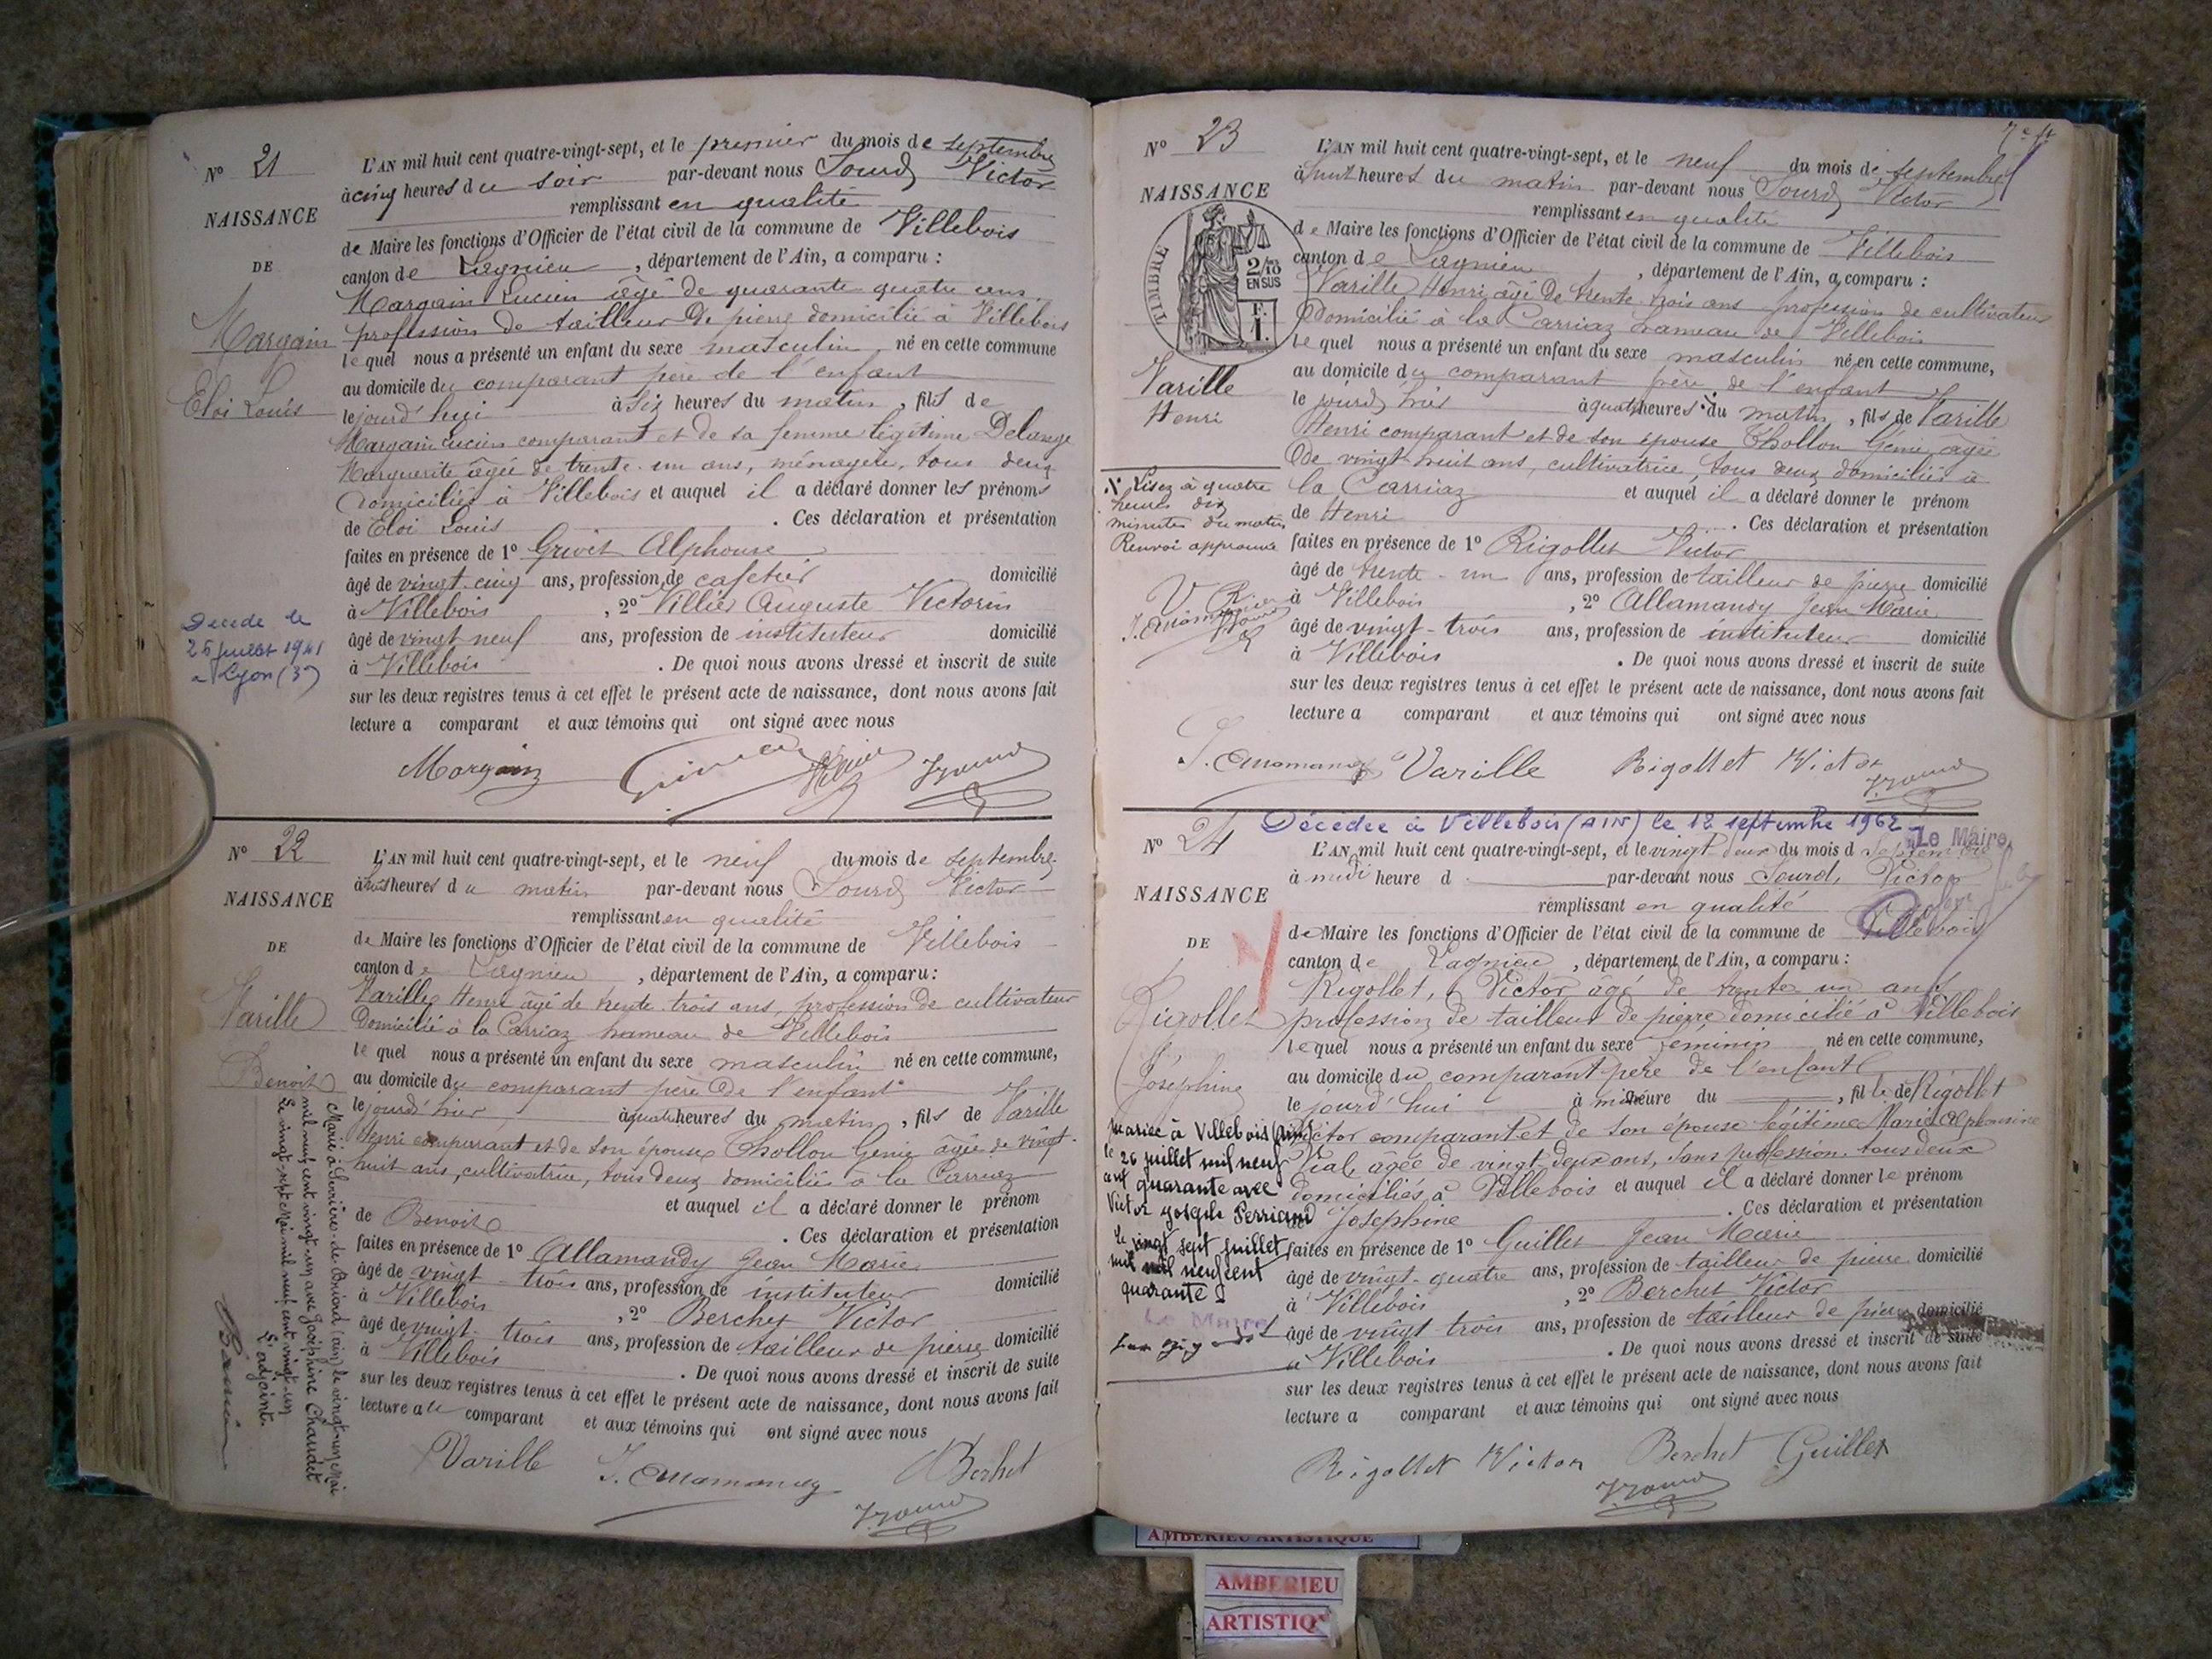 Nº 21
NAISSANCE
DE
Margain
Eloi Louis
Décédé le
26 juillet 1941
a Lyon (3e)
L'AN mil huit cent quatre-vingt-sept, et le premier du mois de septembre
à cinq heures du soir par-devant nous Sourd Victor
remplissant en qualité
de Maire les fonctions d'Officier de l'état civil de la commune de Villebois
canton de Lagnieu, département de l'Ain, a comparu :
Margain Lucien âgé de quarante quatre ans
profession de tailleur de pierre domicilié à Villebois
lequel nous a présenté un enfant du sexe masculin né en cette commune
au domicile du comparant père de l'enfant
le jourd'hui à six heures du matin, fils de
Margain Lucien comparant et de sa femme légitime Delange
Marguerite âgée de trente-un ans, ménagère, tous deux
domiciliés à Villebois et auquel il a déclaré donner les prénoms
de Eloi Louis. Ces déclaration et présentation
faites en présence de 1º Grivet Alphonse
âgé de vingt-cinq ans, profession de cafetier domicilié
à Villebois, 2º Villier Auguste Victorin
âgé de vingt neuf ans, profession de instituteur domicilié
à Villebois. De quoi nous avons dressé et inscrit de suite
sur les deux registres tenus à cet effet le présent acte de naissance, dont nous avons fait
lecture a comparant et aux témoins qui ont signé avec nous
Margain
Nº 22
NAISSANCE
DE
Varille
Benoit
Marié à Serrières-de-Briord (ain) le vingt-un Mai
mil neuf cent vingt-un avec Joséphine Chaudet
Le vingt-sept Mai mil neuf cent vingt-un
L'adjoint.
L'AN mil huit cent quatre-vingt-sept, et le neuf du mois de septembre
à huit heures du matin par-devant nous Sourd Victor
remplissant en qualité
de Maire les fonctions d'Officier de l'état civil de la commune de Villebois
canton de Lagnieu, département de l'Ain, a comparu :
Varille Henri âgé de trente trois ans, profession de cultivateur
Domicilié à la Carriaz hameau de Villebois
lequel nous a présenté un enfant du sexe masculin né en cette commune,
au domicile du comparant père de l'enfant
le jourd'hier à quatre heures du matin, fils de Varille
Henri comparant et de son épouse Thollon Génie âgée de vingt-
huit ans, cultivatrice, tous deux domiciliés à la Carriaz
et auquel il a déclaré donner le prénom
de Benoit. Ces déclaration et présentation
faites en présence de 1º Allamandy Jean Marie
âgé de vingt-trois ans, profession de instituteur domicilié
à Villebois, 2º Berchet Victor
âgé de vingt-trois ans, profession de tailleur de pierre domicilié
à Villebois. De quoi nous avons dressé et inscrit de suite
sur les deux registres tenus à cet effet le présent acte de naissance, dont nous avons fait
lecture au comparant et aux témoins qui ont signé avec nous
Varille J. Allamandy Berchet
Nº 23
NAISSANCE
TIMBRE
2/10
EN SUS
F.
1.
Varille
Henri
X Lisez à quatre
heures dix
minutes du matin
Renvoi approuvé
L'AN mil huit cent quatre-vingt-sept, et le neuf du mois de septembre
à huit heures du matin par-devant nous Sourd Victor
remplissant en qualité
de Maire les fonctions d'Officier de l'état civil de la commune de Villebois
canton de Lagnieu, département de l'Ain, a comparu :
Varille Henri, âgé de trente trois ans profession de cultivateur
Domicilié à la Carriaz hameau de Villebois
lequel nous a présenté un enfant du sexe masculin né en cette commune,
au domicile du comparant père de l'enfant
le jourd'hier à quatre heures X du matin, fils de Varille
Henri comparant et de son épouse Thollon Génie âgée
de vingt-huit ans, cultivatrice, tous deux domiciliés à
la Carriaz et auquel il a déclaré donner le prénom
de Henri. Ces déclaration et présentation
faites en présence de 1º Rigollet Victor
âgé de trente-un ans, profession de tailleur de pierre domicilié
à Villebois, 2º Allamandy Jean Marie
âgé de vingt-trois ans, profession de instituteur domicilié
à Villebois. De quoi nous avons dressé et inscrit de suite
sur les deux registres tenus à cet effet le présent acte de naissance, dont nous avons fait
lecture a comparant et aux témoins qui ont signé avec nous
J. Allamandy Varille Rigollet Victor
Décédée à Villebois (AIN) le 12 septembre 1962
Le Maire,
Nº 24
NAISSANCE
DE
Rigollet
Joséphine
mariée à Villebois (Ain)
le 26 juillet mil neuf
cent quarante avec
Victor Joseph Perriand
le vingt sept juillet
mil neuf cent
quarante
Le Maire
L'AN mil huit cent quatre-vingt-sept, et le vingt-deux du mois d septembre
à midi heure d par-devant nous Sourd, Victor
remplissant en qualité
de Maire les fonctions d'Officier de l'état civil de la commune de Villebois
canton de Lagnieu, département de l'Ain, a comparu :
Rigollet, Victor âgé de trente un ans,
profession de tailleur de pierre domicilié à Villebois
lequel nous a présenté un enfant du sexe féminin né en cette commune,
au domicile du comparant père de l'enfant
le jourd'hui à midi heure du, fille de Rigollet
Victor comparant et de son épouse légitime Marie Alphonsine
Vial, âgée de vingt-deux ans, sans profession, tous deux
domiciliés à Villebois et auquel il a déclaré donner le prénom
de Joséphine. Ces déclaration et présentation
faites en présence de 1º Guillet Jean Marie
âgé de vingt-quatre ans, profession de tailleur de pierre domicilié
à Villebois, 2º Berchet Victor
âgé de vingt trois ans, profession de tailleur de pierre domicilié
à Villebois. De quoi nous avons dressé et inscrit de suite
sur les deux registres tenus à cet effet le présent acte de naissance, dont nous avons fait
lecture a comparant et aux témoins qui ont signé avec nous
Rigollet Victor Berchet Guillet
AMBERIEU ARTISTIQUE
AMBERIEU
ARTISTIQ